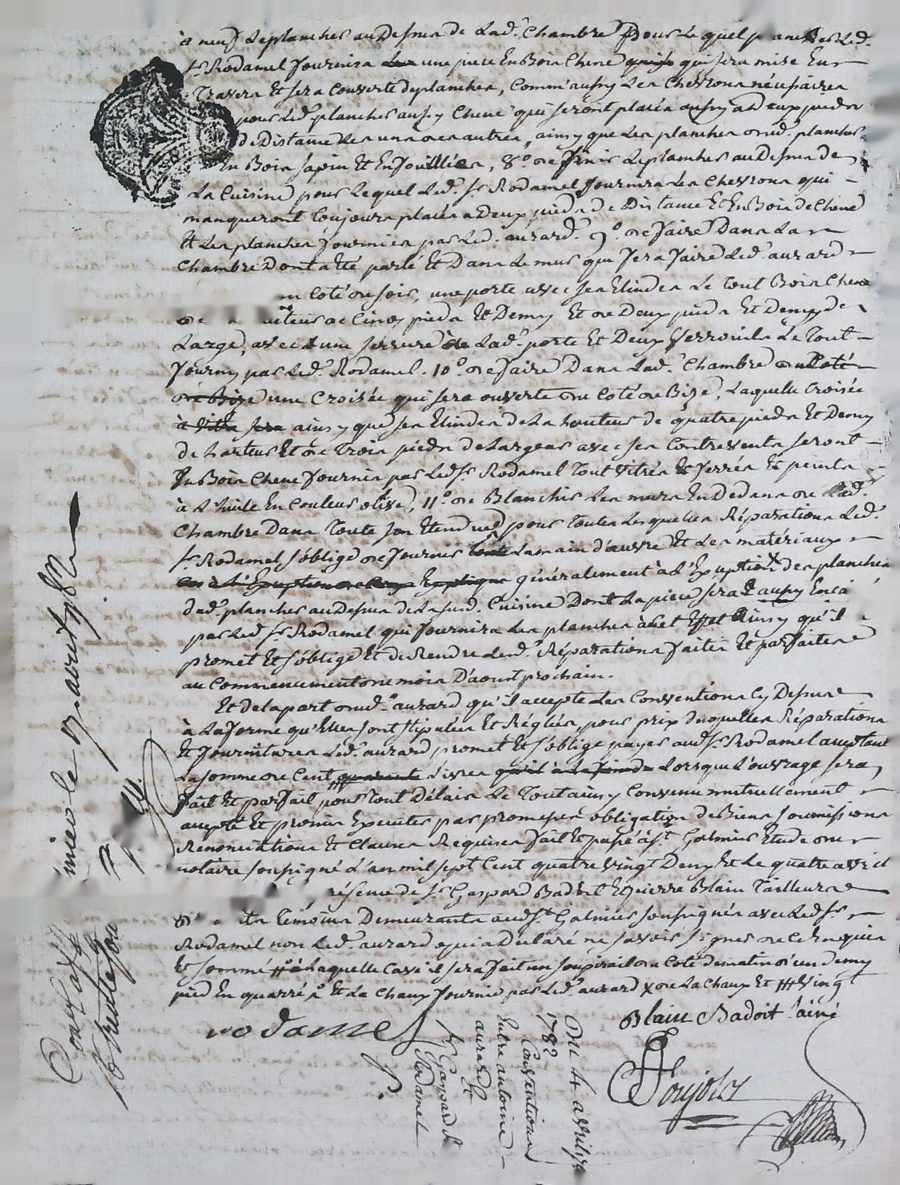 à neuf le plancher au Dessus de Lad.e Chambre pour lequel plancher Led.
Sr Rodamel fournira une piece En Bois Chene qui sera mise En
Travers Et sera Couverte de planches, Comm'aussy Les Chevrons nécessaires
pour Led. plancher aussy Chene qui seront placés aussy a Deux pieds
de Distance Les uns des autres, ainsy que Les planches dud. plancher
En Bois sapin Et En feuillées, 8.o de finir Le plancher au Dessus de
La Cuisine pour Lequel Led. Sr Rodamel fournira Les Chevrons qui
manqueront toujours placés a Deux pieds de Distance Et En Bois de Chene
Et Les planches fournies par Led. aurard. 9.o de faire Dans La
Chambre Dont a Eté parlé Et Dans Le mur que fera faire Led. aurard
Coté de soir, une porte avec ses Elindes Le Tout Bois Chene
de Cinq pieds Et Demy Et de Deux pieds Et Demy de
Large, avec une serrure a Lad.e porte Et Deux Verrouils Le Tout
fourny par Led. Rodamel. 10.o de faire Dans Lad.e Chambre du Coté
de Bize une Croisée qui sera ouverte du Coté de Bize, Laquelle Croisée
ainsy que ses Elindes de La hauteur de quatre pieds Et Demy
de hauteur Et de Trois pieds de Largeur avec ses Contrevents seront
En Bois Chene fournis par Led. Sr Rodamel Tout Vitrés Et ferrés Et peints
à L'huile En Couleur olive, 11.o de Blanchir Les murs En Dedans de Lad.e
Chambre Dans Toute son Etendue, pour toutes Lesquelles Réparations Led.
Sr Rodamel s'oblige de fournir La main d'œuvre Et Les materiaux
généralement à L'Exception des planches
dud. plancher au Dessus de La sud. Cuisine Dont La piece sera aussy
par Led. Sr Rodamel qui fournira Les planches a cet Effet Ainsy qu'il
promet Et s'oblige Et de Rendre Lesd. Réparations faites Et parfaites
au Commencement du mois D'aout prochain.
Et de la part dud. aurard qu'il accepte Les Conventions Cy Dessus
à La forme qu'Elles sont stipulées Et Réglées, pour prix desquelles Réparations
Et fournitures Led. aurard promet Et s'oblige payer aud. Sr Rodamel acceptant
La somme de Cent Livres Lorsque L'ouvrage sera
fait Et parfait pour tout Délais Le Tout ainsy Convenu mutuellement
accepté Et promis Executer par promesses obligation de Biens soumissions
Renonciations Et Clauses Requises fait Et passé à St. Galmier Etude du
notaire soussigné L'an mil sept Cent quatre Vingt Deux Et Le quatre avril
résence de Sr. Gaspard Badoit Et pierre Blain Tailleurs
Temoins Demeurants aud. St. Galmier soussignés avec Led. Sr
Rodamel non Led. aurard qui a Déclaré ne savoir signer de ce Enquis
Et sommé à Laquelle Cave il sera fait un soupirail du Coté de matin d'un demy
pied En quarré Et La Chaux fournie par Led. aurard x de La Chaux Et Vingt
rodamel
Blain Badoit ainé
Du 4 avril
1782
Conventions
Entre antoine
aurard &
Sr Gaspard
Rodamel